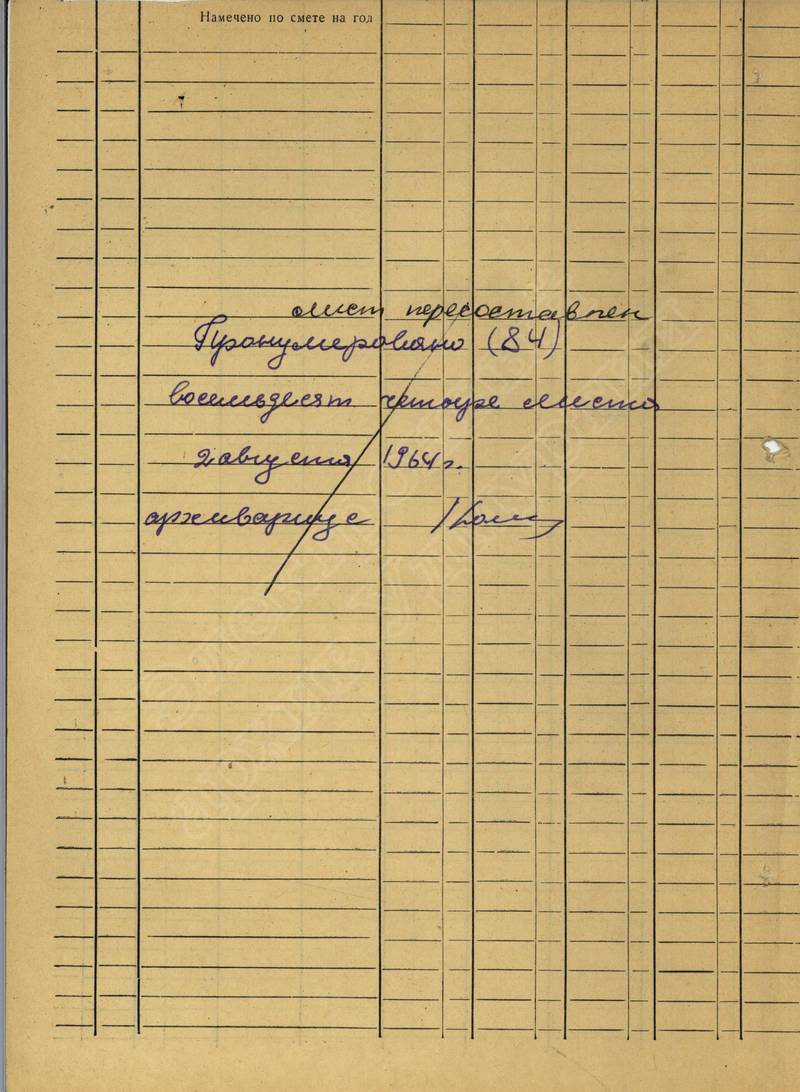 Намечено по смете на год
лист пересоставлен
Пронумеровано (84)
восемьдесят четыре листа
2 августа 1964 г.
архивариус